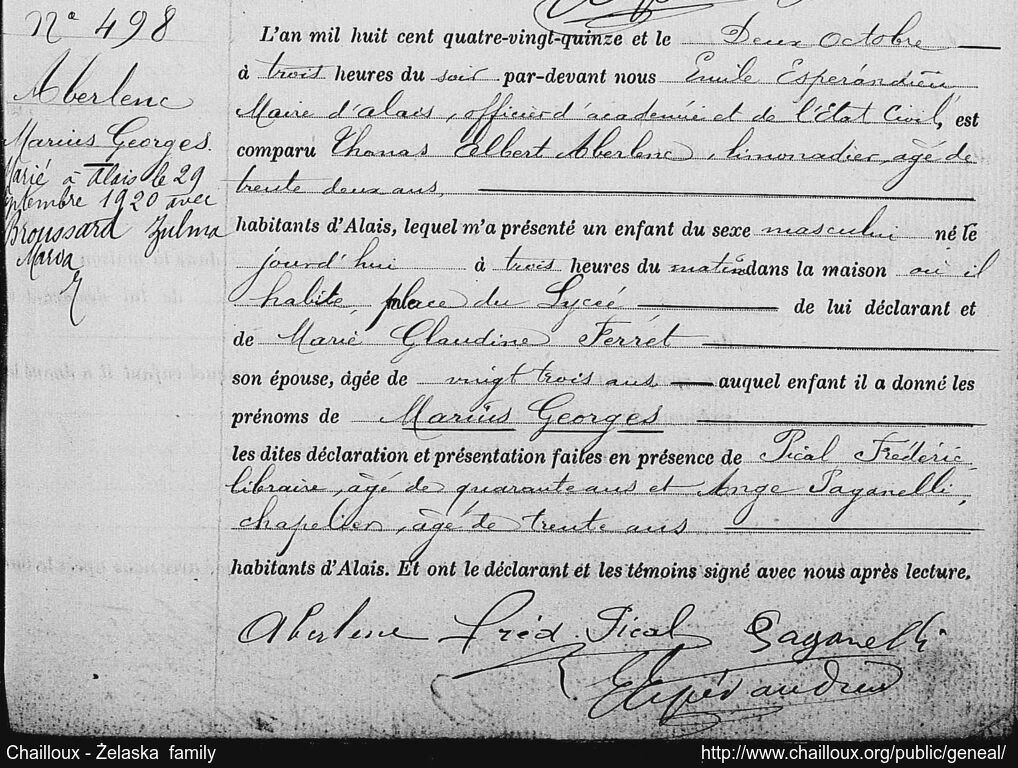 Nº 498
Aberlenc
Marius Georges.
Marié à Alais le 29
septembre 1920 avec
Broussard Zulma
Marsa
L'an mil huit cent quatre-vingt-quinze et le Deux octobre
à trois heures du soir par-devant nous Emile Espérandieu
Maire d'alais, officier d'académie et de l'Etat Civil, est
comparu Thomas Albert Aberlenc, limonadier, âgé de
trente deux ans,
habitants d'Alais, lequel m'a présenté un enfant du sexe masculin né le
jourd'hui à trois heures du matin dans la maison où il
habite, place du Lycée de lui déclarant et
de Marie Claudine Ferret
son épouse, âgée de vingt trois ans auquel enfant il a donné les
prénoms de Marius Georges
les dites déclaration et présentation faites en présence de Pical Frédéric
libraire, âgé de quarante ans et Ange Paganelli,
chapelier, âgé de trente ans
habitants d'Alais. Et ont le déclarant et les témoins signé avec nous après lecture.
Aberlenc Fréd. Pical Paganelli
E Espérandieu
Chailloux - Želaska family
http://www.chailloux.org/public/geneal/